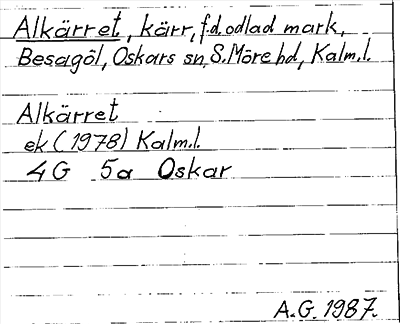 Alkärret, kärr, f.d. odlad mark,
Besagöl, Oskars sn, S. Möre hd, Kalm.l.
Alkärret
ek (1978) Kalm.l.
4G 5a Oskar
A.G. 1987.